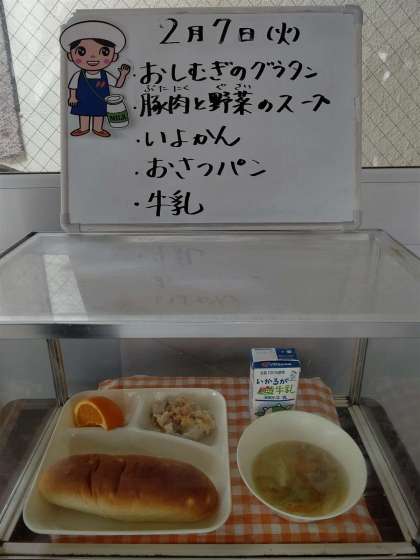 2月7日(火)
・おしむぎのグラタン
ぶたにく やさい
・豚肉と野菜のスープ
・いよかん
・おさつパン
・牛乳
MILK
いかるが
牛乳